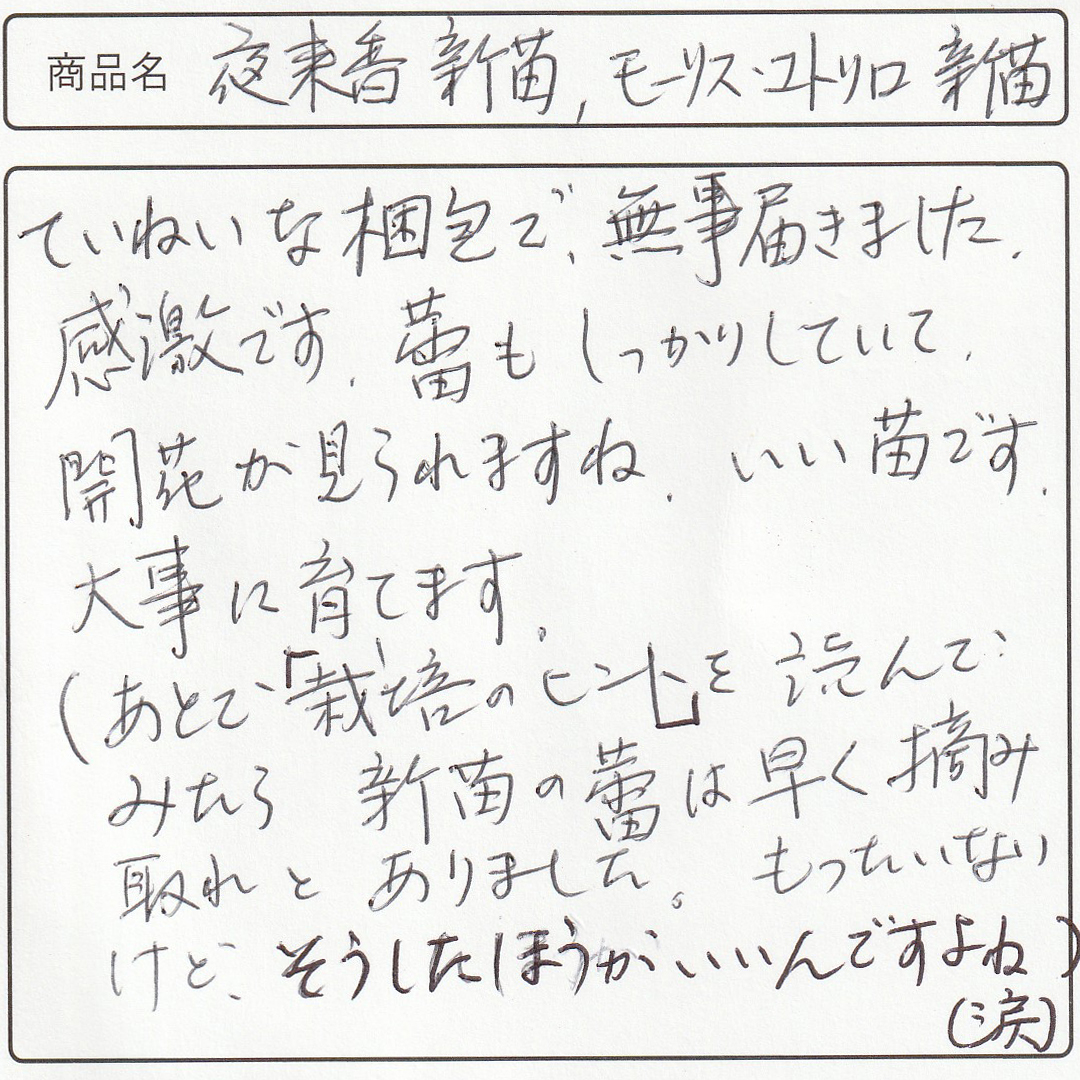 商品名 夜来香 新苗, モーリス・ユトリロ 新苗
ていねいな梱包で、無事届きました.
感激です. 蕾もしっかりしていて.
開花が見られますね. いい苗です.
大事に育てます.
(あとで「栽培のヒント」を読んで
みたら 新苗の蕾は早く摘み
取れと ありました。 もったいない
けど、そうしたほうがいいんですよね)
(涙)